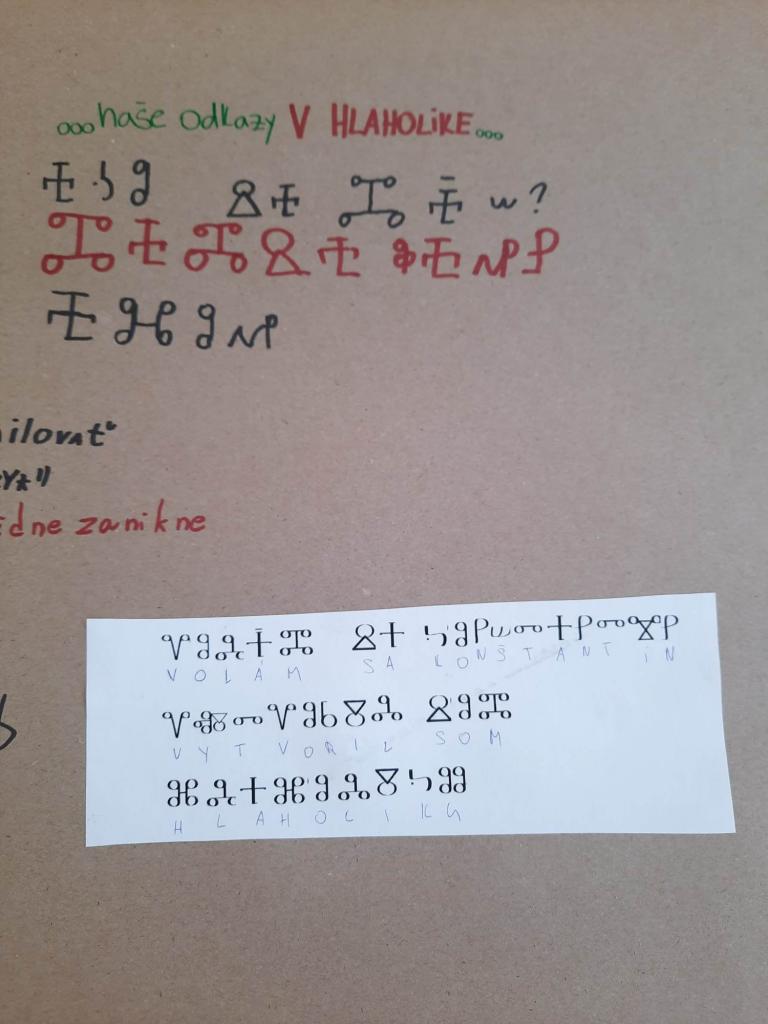 ...naše odkazy V HLAHOLiKE...
ⰰⰽⱁ ⱄⰰ ⰿⰰ̄ⱎ?
ⰿⰰⰿⱄⰰ ⱇⰰⰼⱀ
ⰰⱈⱁⰼ
ilovať
dne zanikne
ⰲⱁⰾⰰ̄ⰿ ⱄⰰ ⰽⱁⱀⱎⱅⰰⱀⱅⰻⱀ
VOLÁM SA KONŠTANTIN
ⰲⱏⰻⱅⰲⱁⱃⰻⰾ ⱄⱁⰿ
VYTVORIL SOM
ⱈⰾⰰⱈⱁⰾⰻⰽⱆ
HLAHOLIKU